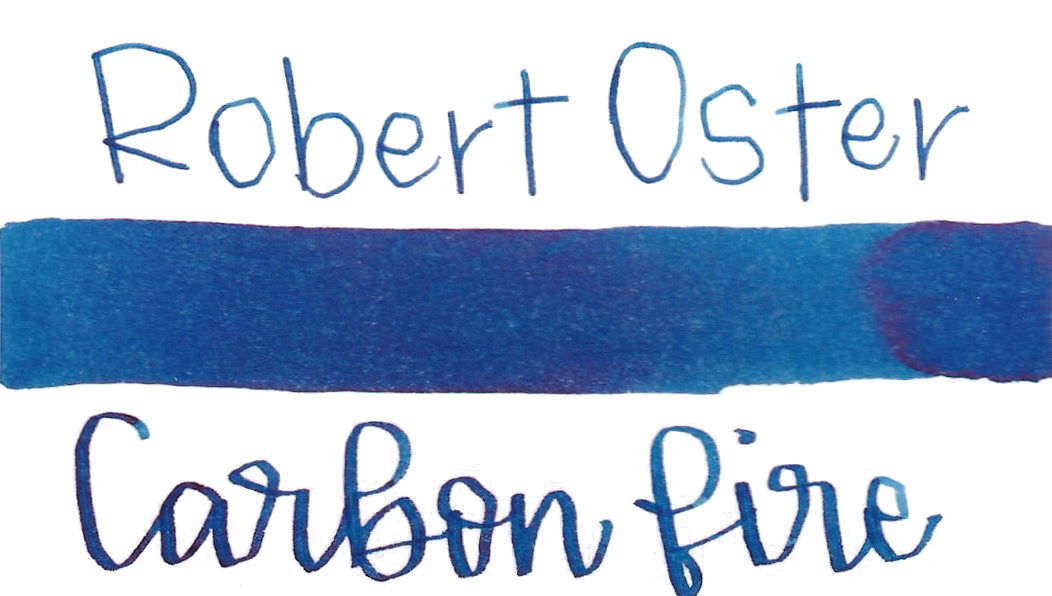 Robert Oster
Carbon fire